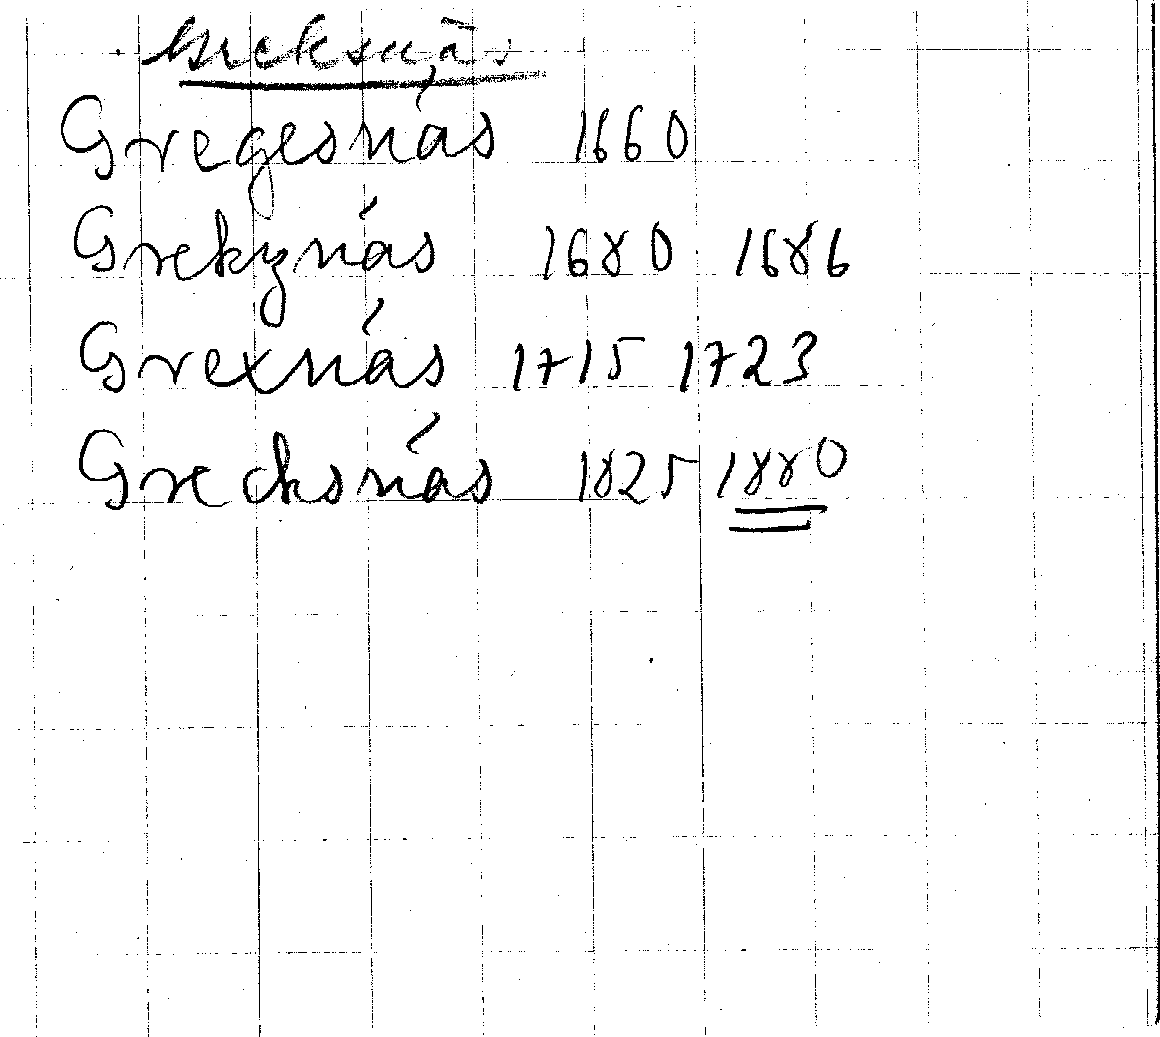 Greksnäs
Gregesnäs 1660
Grekznäs 1680 1686
Grexnäs 1715 1723
Grecksnäs 1825 1880